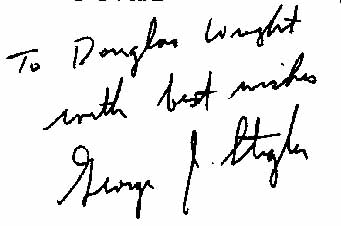 To Douglas Wright
with best wishes
George J. Stigler